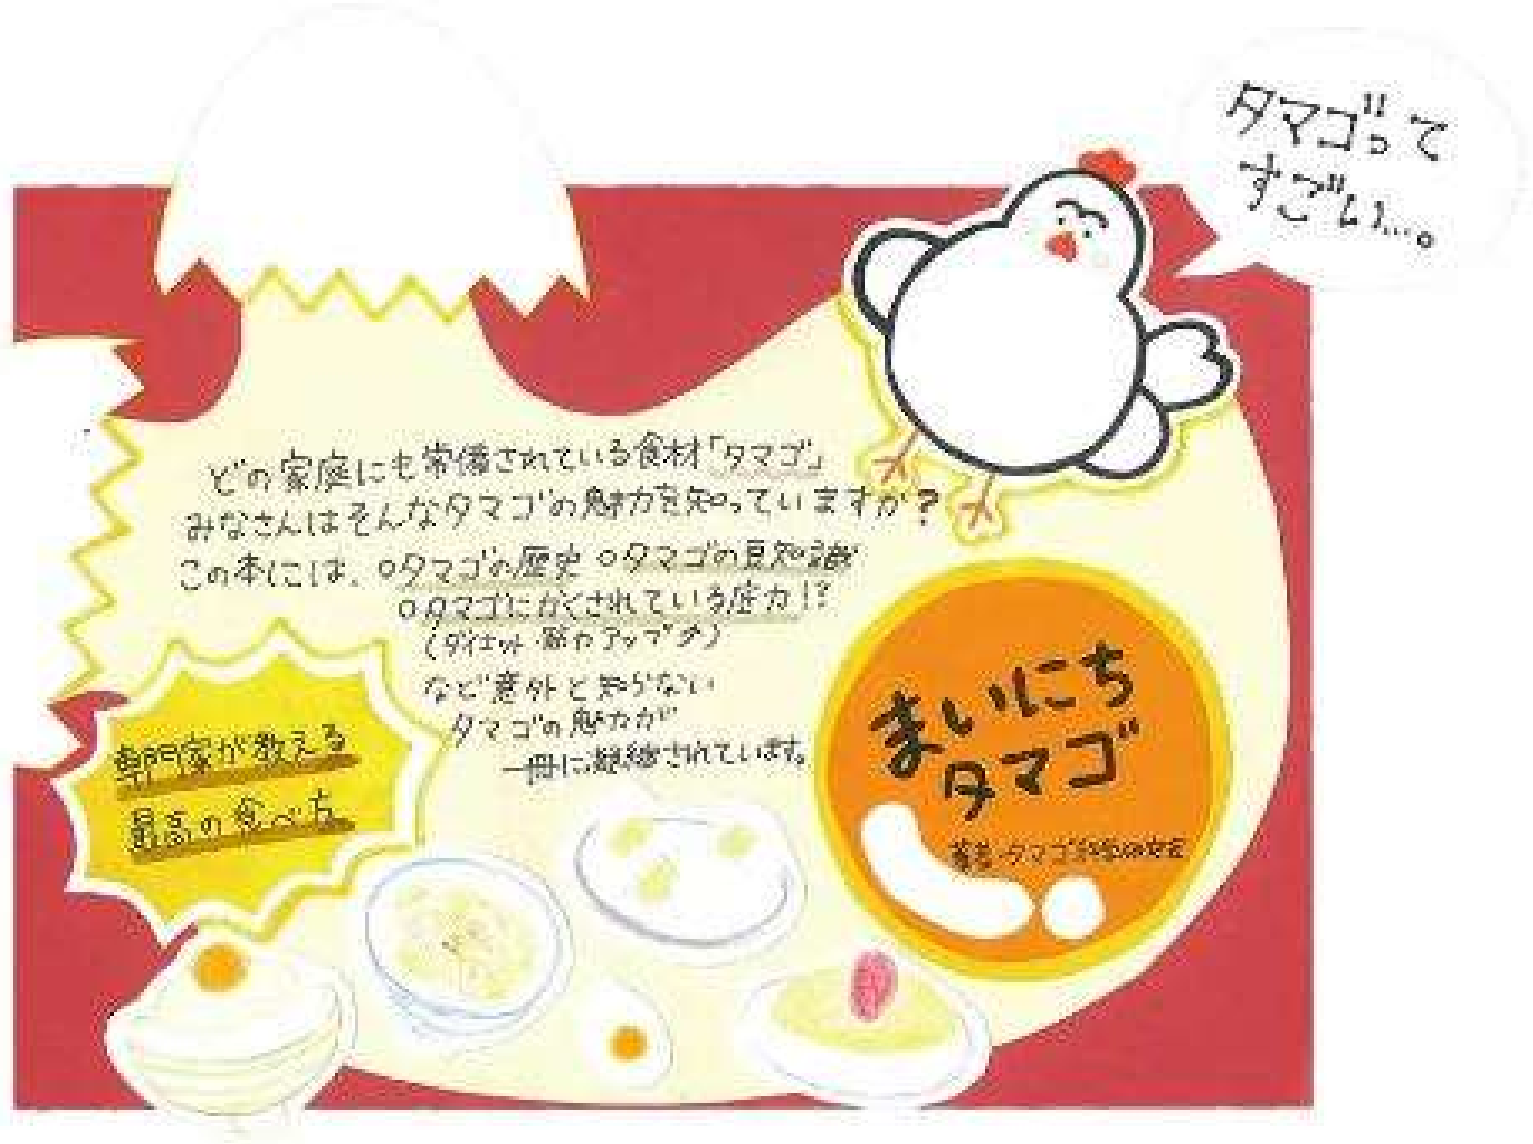 タマゴって
すごい…。
どの家庭にも常備されている食材「タマゴ」
みなさんはそんなタマゴの魅力を知っていますか？
この本には、○タマゴの歴史 ○タマゴの豆知識
○タマゴにかくされている底力!?
(ダイエット・筋力アップ
など意外と知らない
タマゴの魅力が
一冊に凝縮されています。
専門家が教える
最高の食べ方
まいにち
タマゴ
著者・タマゴ